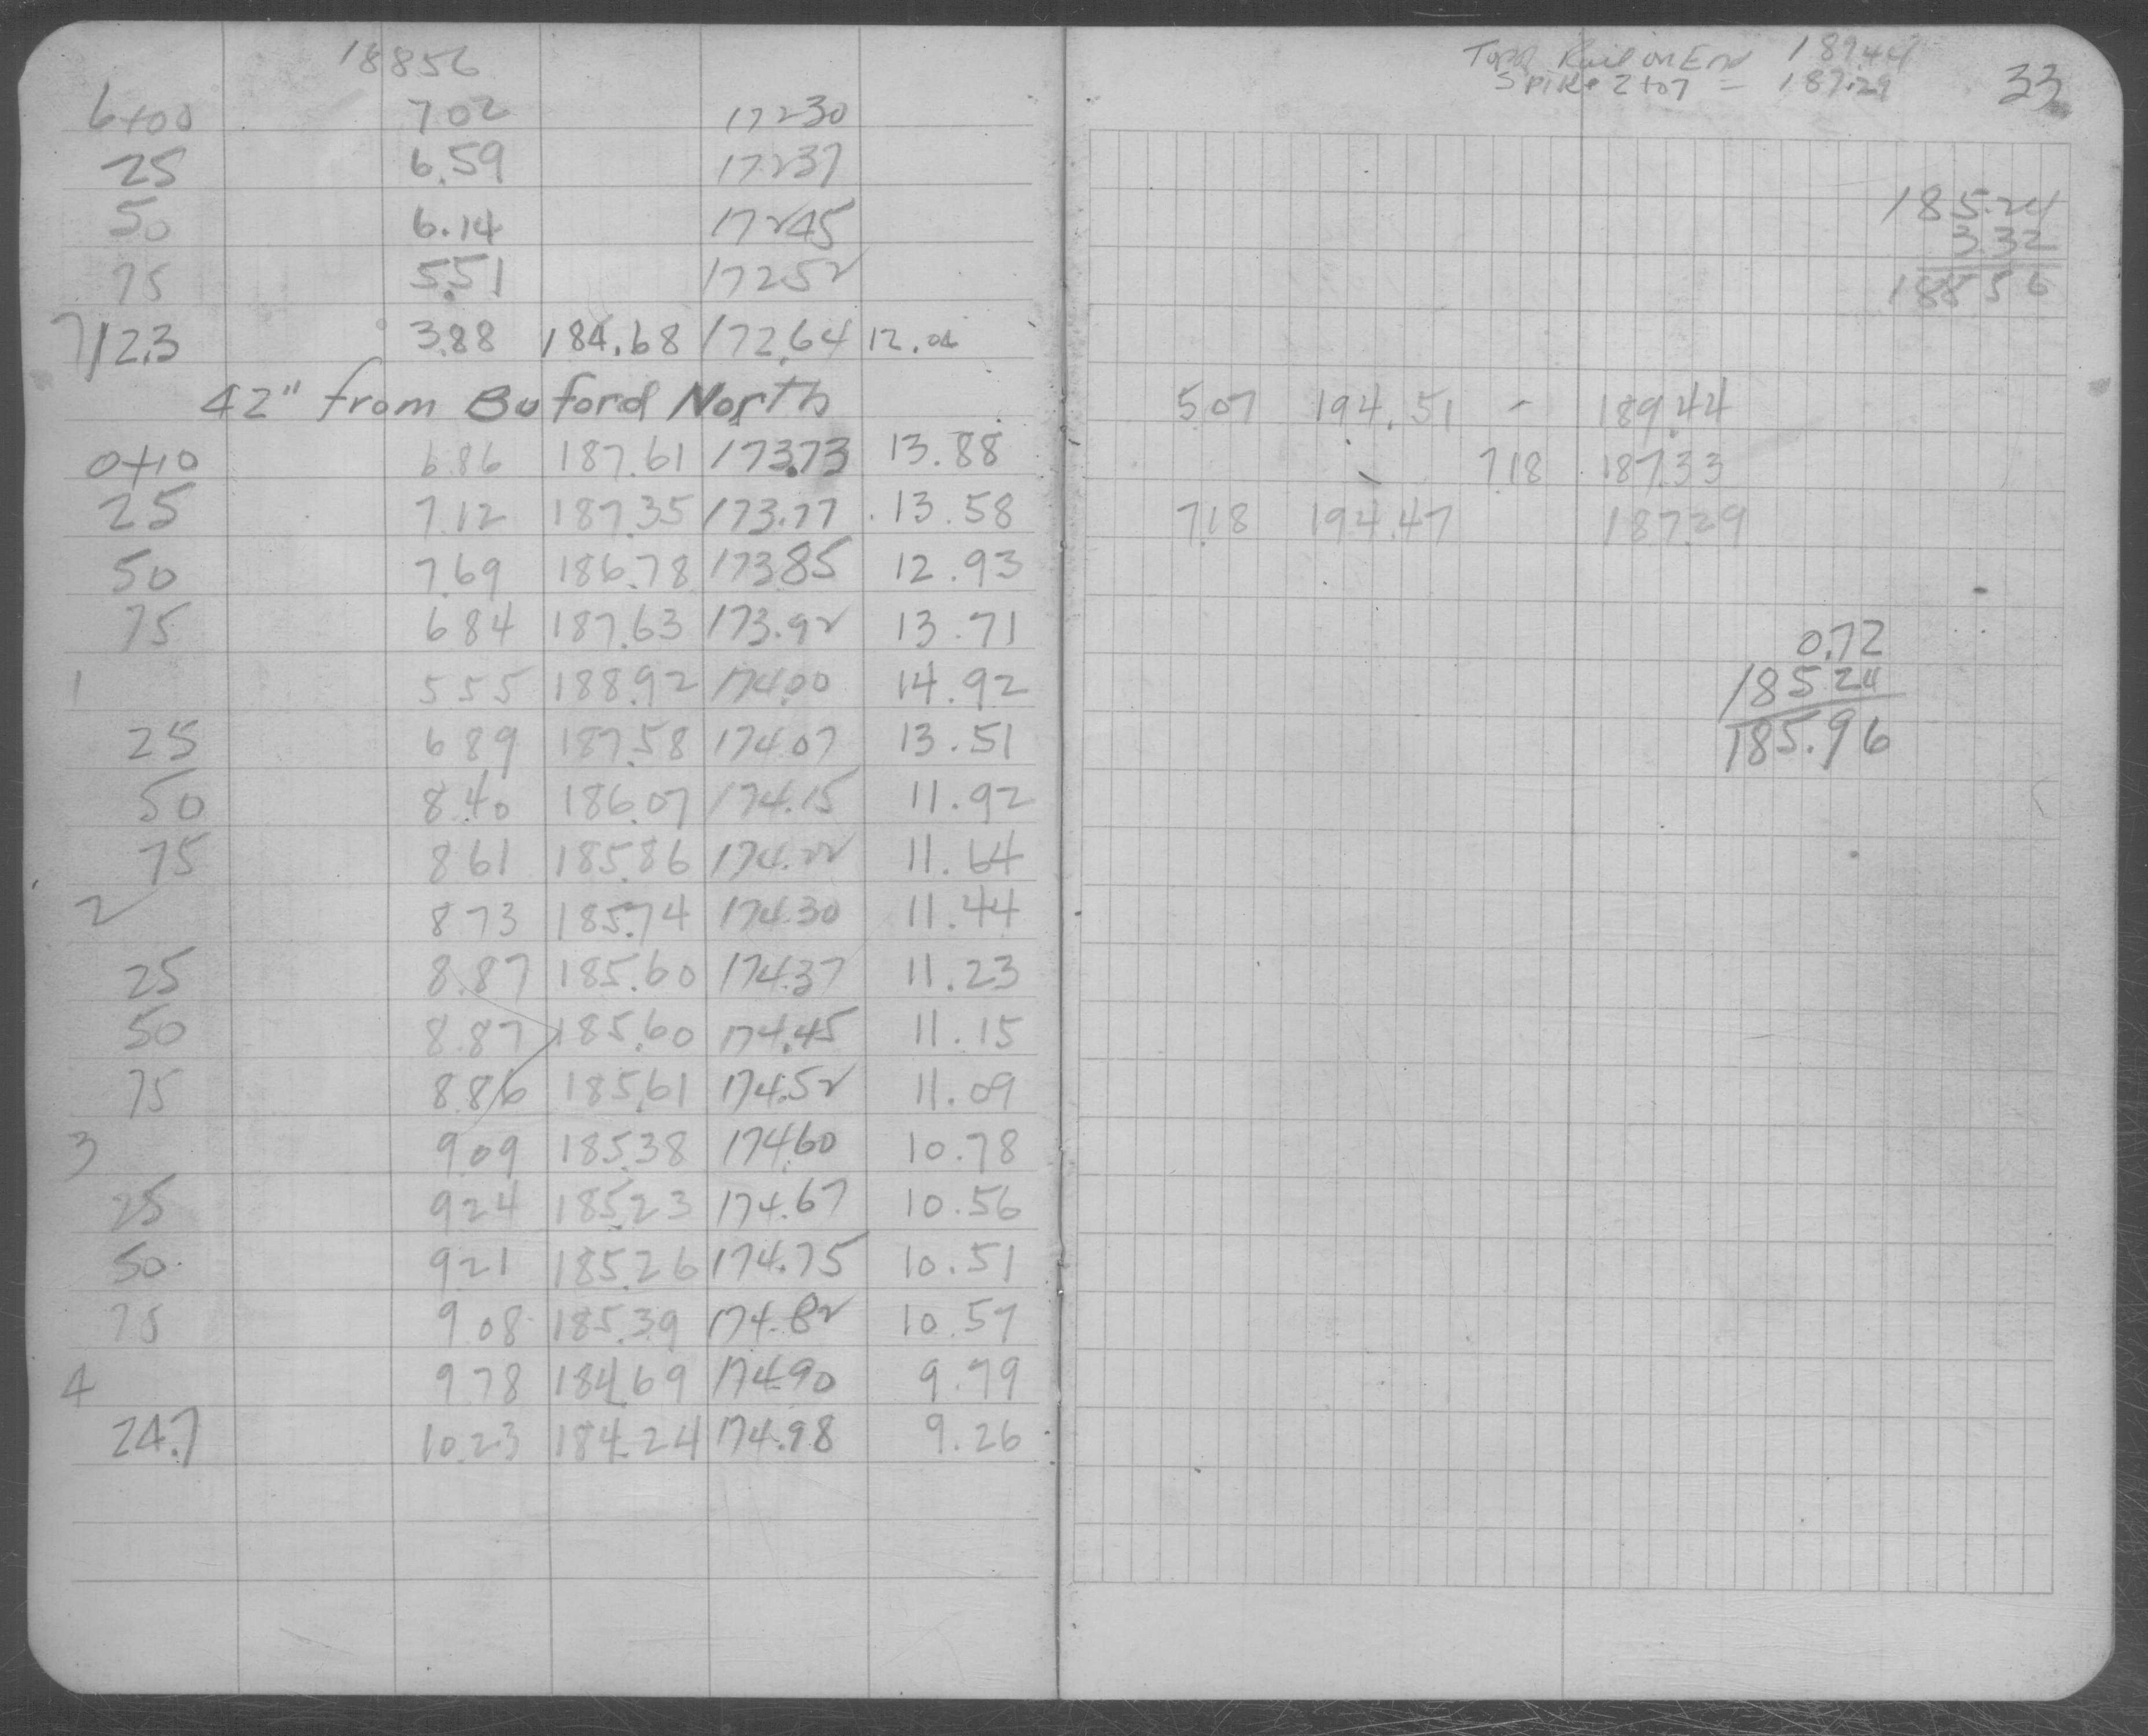 18856
6+00 7.02 172.30
25 6.59 172.37
50 6.14 172.45
75 5.51 172.52
7 12.3 3.88 184.68 172.64 12.04
42" from Buford North
0+10 6.86 187.61 173.73 13.88
25 7.12 187.35 173.77 13.58
50 7.69 186.78 173.85 12.93
75 6.84 187.63 173.92 13.71
1 5.55 188.92 174.00 14.92
25 6.89 187.58 174.07 13.51
50 8.40 186.07 174.15 11.92
75 8.61 185.86 174.22 11.64
2 8.73 185.74 174.30 11.44
25 8.87 185.60 174.37 11.23
50 8.87 185.60 174.45 11.15
75 8.86 185.61 174.52 11.09
3 9.09 185.38 174.60 10.78
25 9.24 185.23 174.67 10.56
50 9.21 185.26 174.75 10.51
75 9.08 185.39 174.82 10.57
4 9.78 184.69 174.90 9.79
24.7 10.23 184.24 174.98 9.26
Rail on End 189.44
Spike 2+07 = 187.29
33
185.24
3.32
188.56
5.07 194.51 - 189.44
7.18 187.33
7.18 194.47 187.29
0.72
185.24
185.96